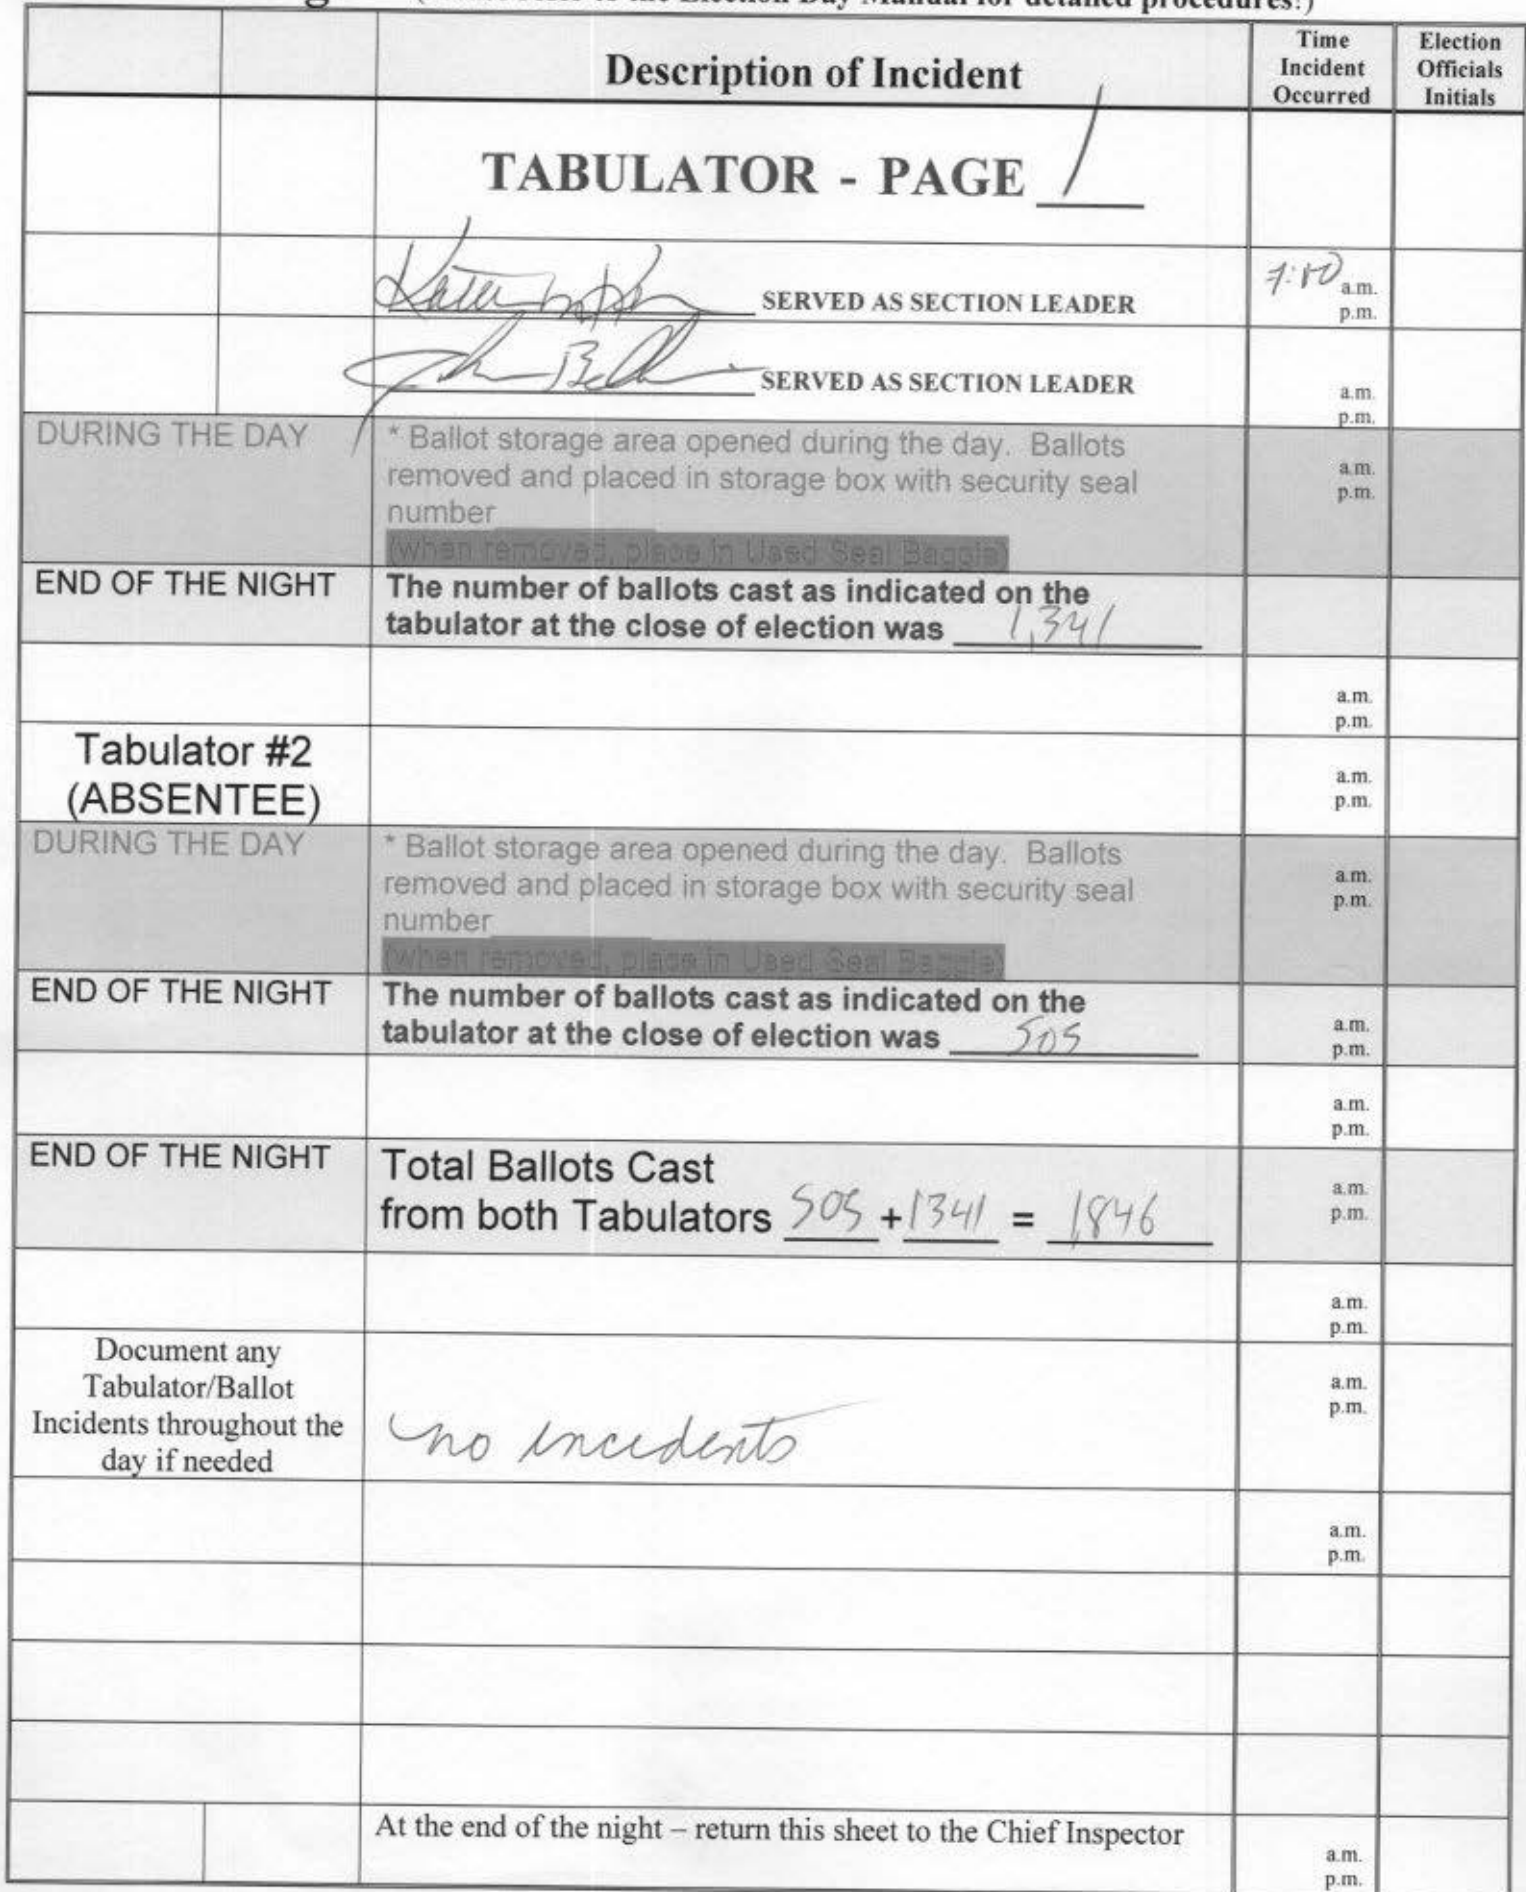 Election Day Manual for detailed procedures!)
Description of Incident
Time
Incident
Occurred
Election
Officials
Initials
TABULATOR - PAGE 1
SERVED AS SECTION LEADER
7:00 a.m.
p.m.
John SERVED AS SECTION LEADER
a.m.
p.m.
DURING THE DAY
* Ballot storage area opened during the day. Ballots
removed and placed in storage box with security seal
number
(when removed, place in Used Seal Baggie)
a.m.
p.m.
END OF THE NIGHT
The number of ballots cast as indicated on the
tabulator at the close of election was 1,341
a.m.
p.m.
Tabulator #2
(ABSENTEE)
a.m.
p.m.
DURING THE DAY
* Ballot storage area opened during the day. Ballots
removed and placed in storage box with security seal
number
(when removed, place in Used Seal Baggie)
a.m.
p.m.
END OF THE NIGHT
The number of ballots cast as indicated on the
tabulator at the close of election was 505
a.m.
p.m.
a.m.
p.m.
END OF THE NIGHT
Total Ballots Cast
from both Tabulators 505 + 1341 = 1,846
a.m.
p.m.
a.m.
p.m.
Document any
Tabulator/Ballot
Incidents throughout the
day if needed
no incidents
a.m.
p.m.
a.m.
p.m.
At the end of the night – return this sheet to the Chief Inspector
a.m.
p.m.